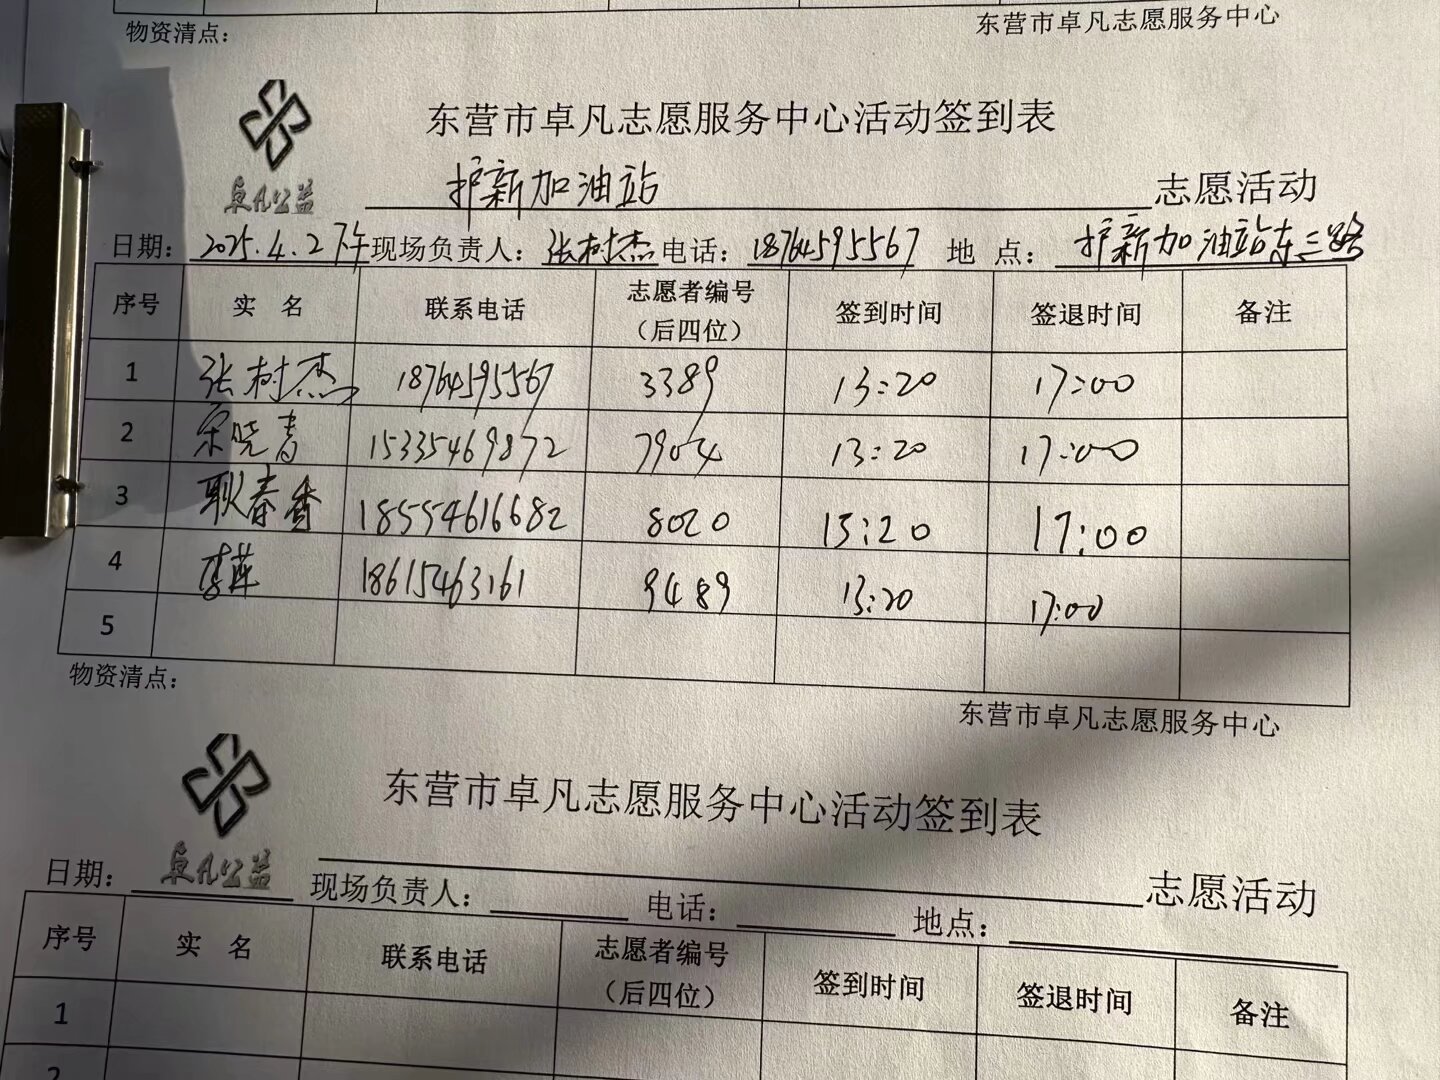 物资清点：
东营市卓凡志愿服务中心
东营市卓凡志愿服务中心活动签到表
卓凡公益
护新加油站 志愿活动
日期：2025.4.2下午 现场负责人：张树杰 电话：18764595567 地 点：护新加油站东三路
序号 实 名 联系电话 志愿者编号（后四位） 签到时间 签退时间 备注
1 张树杰 18764595567 3389 13:20 17:00
2 宋晓青 15335469872 7904 13:20 17:00
3 耿春香 18554616682 8020 13:20 17:00
4 李莲 18615463161 9489 13:20 17:00
5
物资清点：
东营市卓凡志愿服务中心
东营市卓凡志愿服务中心活动签到表
卓凡公益
志愿活动
日期： 现场负责人： 电话： 地点：
序号 实 名 联系电话 志愿者编号（后四位） 签到时间 签退时间 备注
1
2